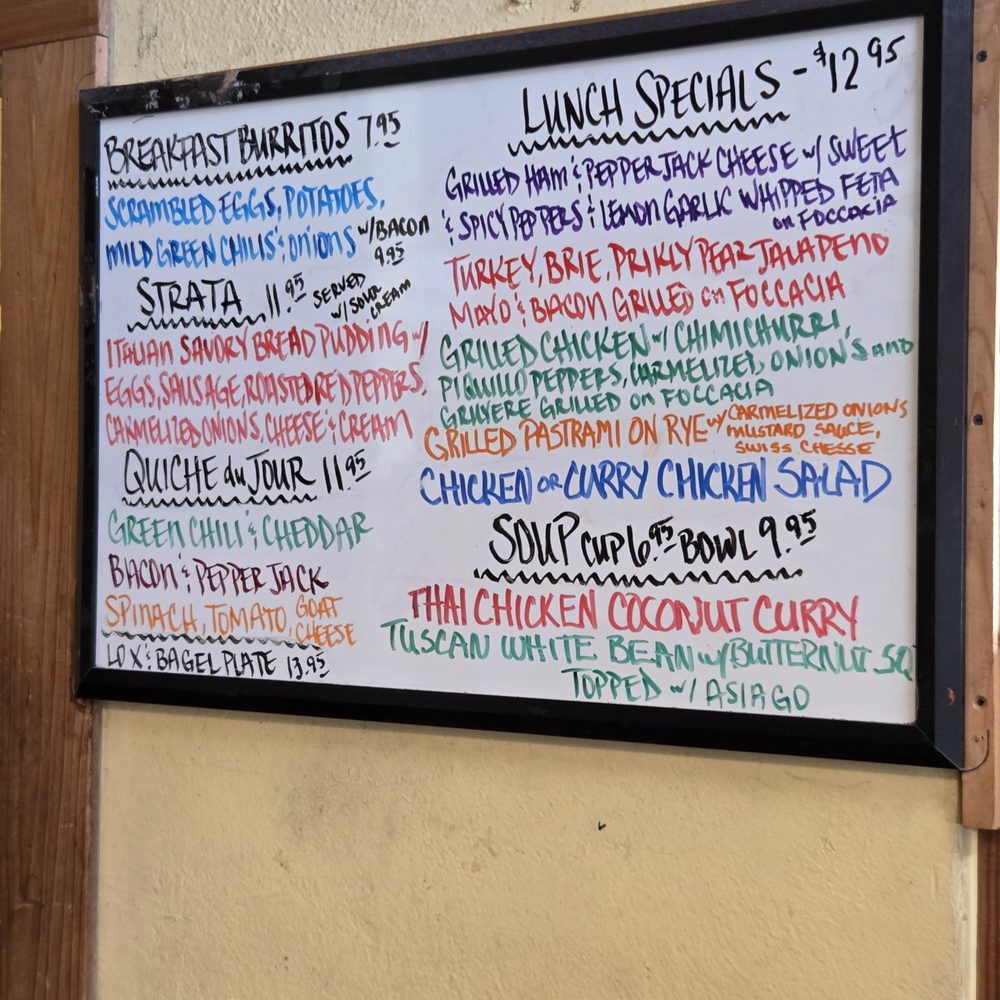 BREAKFAST BURRITOS 7.95
SCRAMBLED EGGS, POTATOES,
MILD GREEN CHILIS & ONIONS w/BACON 9.95
STRATA 11.95 SERVED w/ SOUR CREAM
ITALIAN SAVORY BREAD PUDDING w/
EGGS, SAUSAGE, ROASTED RED PEPPERS,
CARMELIZED ONIONS, CHEESE & CREAM
QUICHE du JOUR 11.95
GREEN CHILI & CHEDDAR
BACON & PEPPER JACK
SPINACH, TOMATO, GOAT CHEESE
LOX & BAGEL PLATE 13.95
LUNCH SPECIALS - $12.95
GRILLED HAM & PEPPER JACK CHEESE w/ SWEET
& SPICY PEPPERS & LEMON GARLIC WHIPPED FETA
on FOCCACIA
TURKEY, BRIE, PRIKLY PEAR JALAPENO
MAYO & BACON GRILLED on FOCCACIA
GRILLED CHICKEN w/ CHIMICHURRI,
PIQUILLO PEPPERS, CARMELIZED, ONION'S and
GRUYERE GRILLED on FOCCACIA
GRILLED PASTRAMI ON RYE w/ CARMELIZED ONIONS
MUSTARD SAUCE,
SWISS CHESSE
CHICKEN OR CURRY CHICKEN SALAD
SOUP CUP 6.95 BOWL 9.95
THAI CHICKEN COCONUT CURRY
TUSCAN WHITE BEAN w/ BUTTERNUT SQ
TOPPED w/ ASIAGO